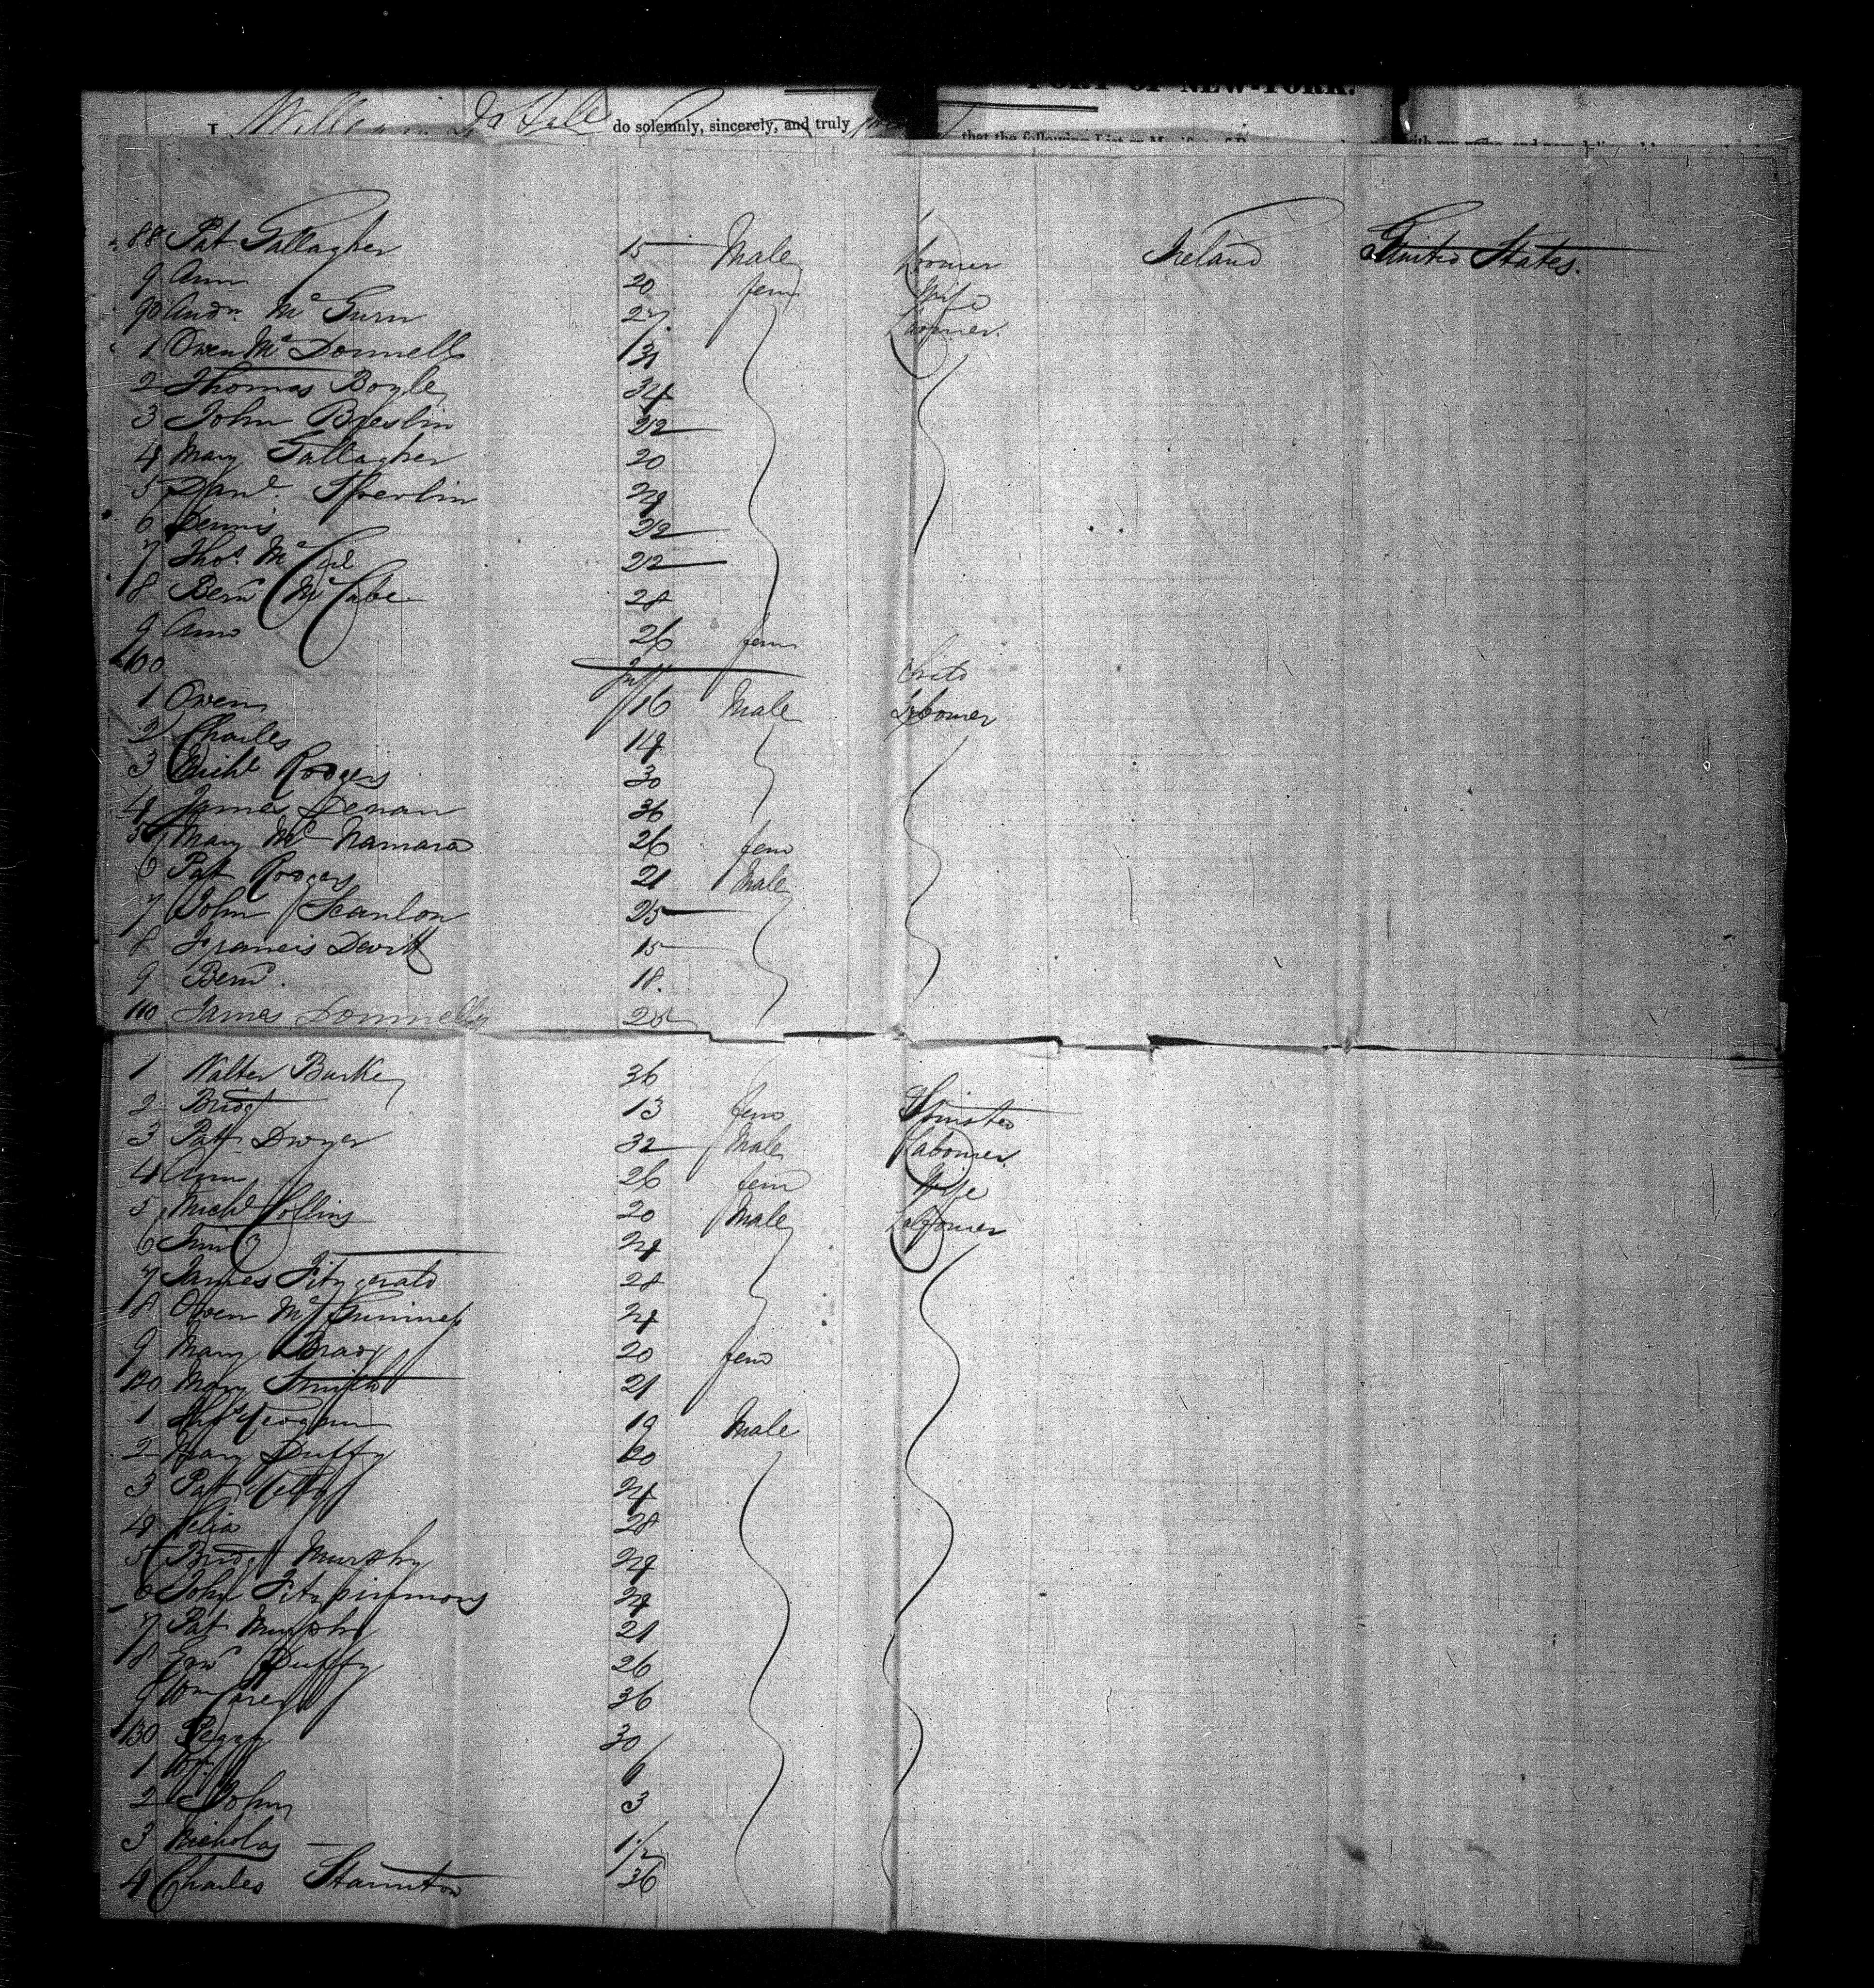 PORT OF NEW-YORK.
I, William do solemnly, sincerely, and truly that the following List or Manifest of
88 Pat Gallagher 15 Male Labourer Ireland United States.
9 Ann 20 fem Wife
90 Andw. Mc Gurn 27. Labourer.
1 Owen Mc Donnell 31
2 Thomas Boyle 34
3 John Breslin 22
4 Mary Gallagher 20
5 Danl. 24
6 Dennis 22
7 Thos. Mc 22
8 Bernd Mc Cabe 28
9 Ann 26 fem
100 Inf Child
1 Owen 16 Male Labourer
2 Charles 14
3 Michl Rodgers 30
4 James Denan 36
5 Mary Mc Namara 26 fem
6 Pat Rodgers 21 Male
7 John Scanlon 25
8 Francis Devitt 15
9 Bernd. 18.
110 James Donnelly 25
1 Walter Burke 36
2 Bridgt 13 fem Spinster
3 Patt Dwyer 32 Male Labourer
4 Ann 26 fem Wife
5 Michl Collins 20 Male Labourer
6 Timy 24
7 James Fitzgerald 28
8 Owen Mc Guinness 24
9 Mary Brady 20 fem
120 Mary Smith 21
1 Thos Keogan 19 Male
2 Mary Duffy 20
3 Pat Kelly 24
4 Celia 28
5 Bridgt Murphy 24
6 John Fitzsimmons 24
7 Pat Murphy 21
8 Duffy 26
9 Wm Carey 36
130 Peggy 30
1 Wm. 6
2 John 3
3 Nicholas 1 1/2
4 Charles Staunton 36